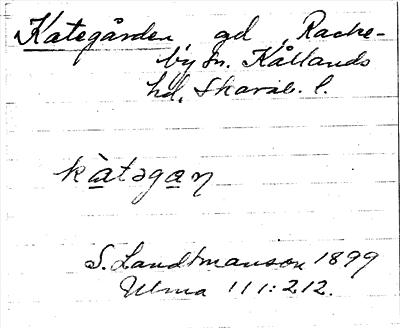 Kategården gd, Racke-
by sn. Kållands
hd, Skarab. l.
kàtəgaɲ
S. Landtmanson 1899
Ulma 111:212.